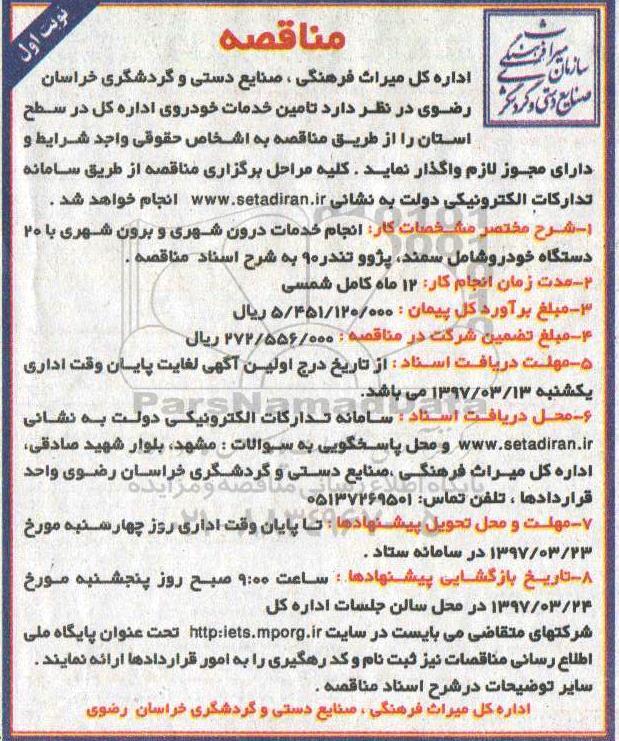 نوبت اول
سازمان میراث فرهنگی
صنایع دستی و گردشگری
مناقصه
اداره کل میراث فرهنگی ، صنایع دستی و گردشگری خراسان
رضوی در نظر دارد تامین خدمات خودروی اداره کل در سطح
استان را از طریق مناقصه به اشخاص حقوقی واجد شرایط و
دارای مجوز لازم واگذار نماید . کلیه مراحل برگزاری مناقصه از طریق سامانه
تدارکات الکترونیکی دولت به نشانی www.setadiran.ir انجام خواهد شد .
۱-شرح مختصر مشخصات کار: انجام خدمات درون شهری و برون شهری با ۲۰
دستگاه خودروشامل سمند، پژوو تندر۹۰ به شرح اسناد مناقصه .
۲-مدت زمان انجام کار: ۱۲ ماه کامل شمسی
۳-مبلغ برآورد کل پیمان : ۵/۴۵۱/۱۲۰/۰۰۰ ریال
۴-مبلغ تضمین شرکت در مناقصه : ۲۷۲/۵۵۶/۰۰۰ ریال
۵-مهلت دریافت اسناد : از تاریخ درج اولین آگهی لغایت پایان وقت اداری
یکشنبه ۱۳۹۷/۰۳/۱۳ می باشد.
ParsNamadData
۶-محل دریافت اسناد : سامانه تدارکات الکترونیکی دولت به نشانی
www.setadiran.ir و محل پاسخگویی به سوالات : مشهد، بلوار شهید صادقی،
اداره کل میراث فرهنگی ،صنایع دستی و گردشگری خراسان رضوی واحد
پایگاه اطلاع رسانی مناقصه و مزایده
قراردادها ، تلفن تماس: ۰۵۱۳۷۲۶۹۵۰۱
۷-مهلت و محل تحویل پیشنهادها : تا پایان وقت اداری روز چهارشنبه مورخ
۱۳۹۷/۰۳/۲۳ در سامانه ستاد .
۸-تاریخ بازگشایی پیشنهادها : ساعت ۹:۰۰ صبح روز پنجشنبه مورخ
۱۳۹۷/۰۳/۲۴ در محل سالن جلسات اداره کل
شرکتهای متقاضی می بایست در سایت http:iets.mporg.ir تحت عنوان پایگاه ملی
اطلاع رسانی مناقصات نیز ثبت نام و کد رهگیری را به امور قراردادها ارائه نمایند .
سایر توضیحات درشرح اسناد مناقصه .
اداره کل میراث فرهنگی ، صنایع دستی و گردشگری خراسان رضوی